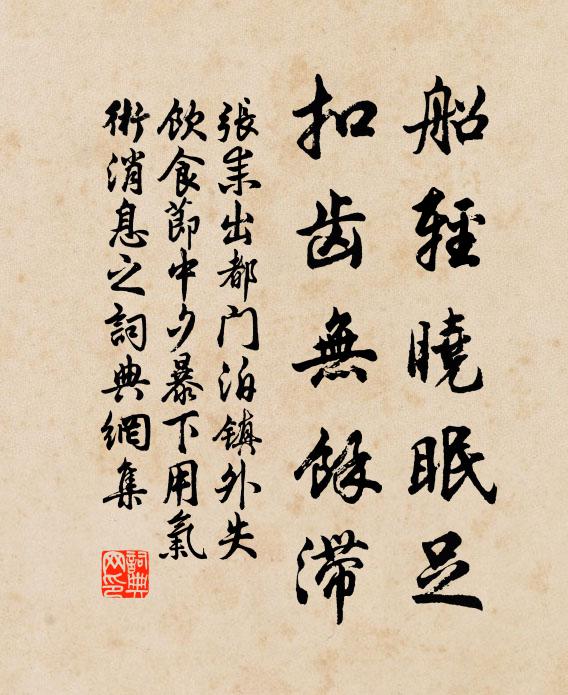 船輕曉眠足
扣齿無餘滞
張耒出都门泊鎮外失
飲食節中夕暴下用氣
術消息之詞典網集
詞典网印